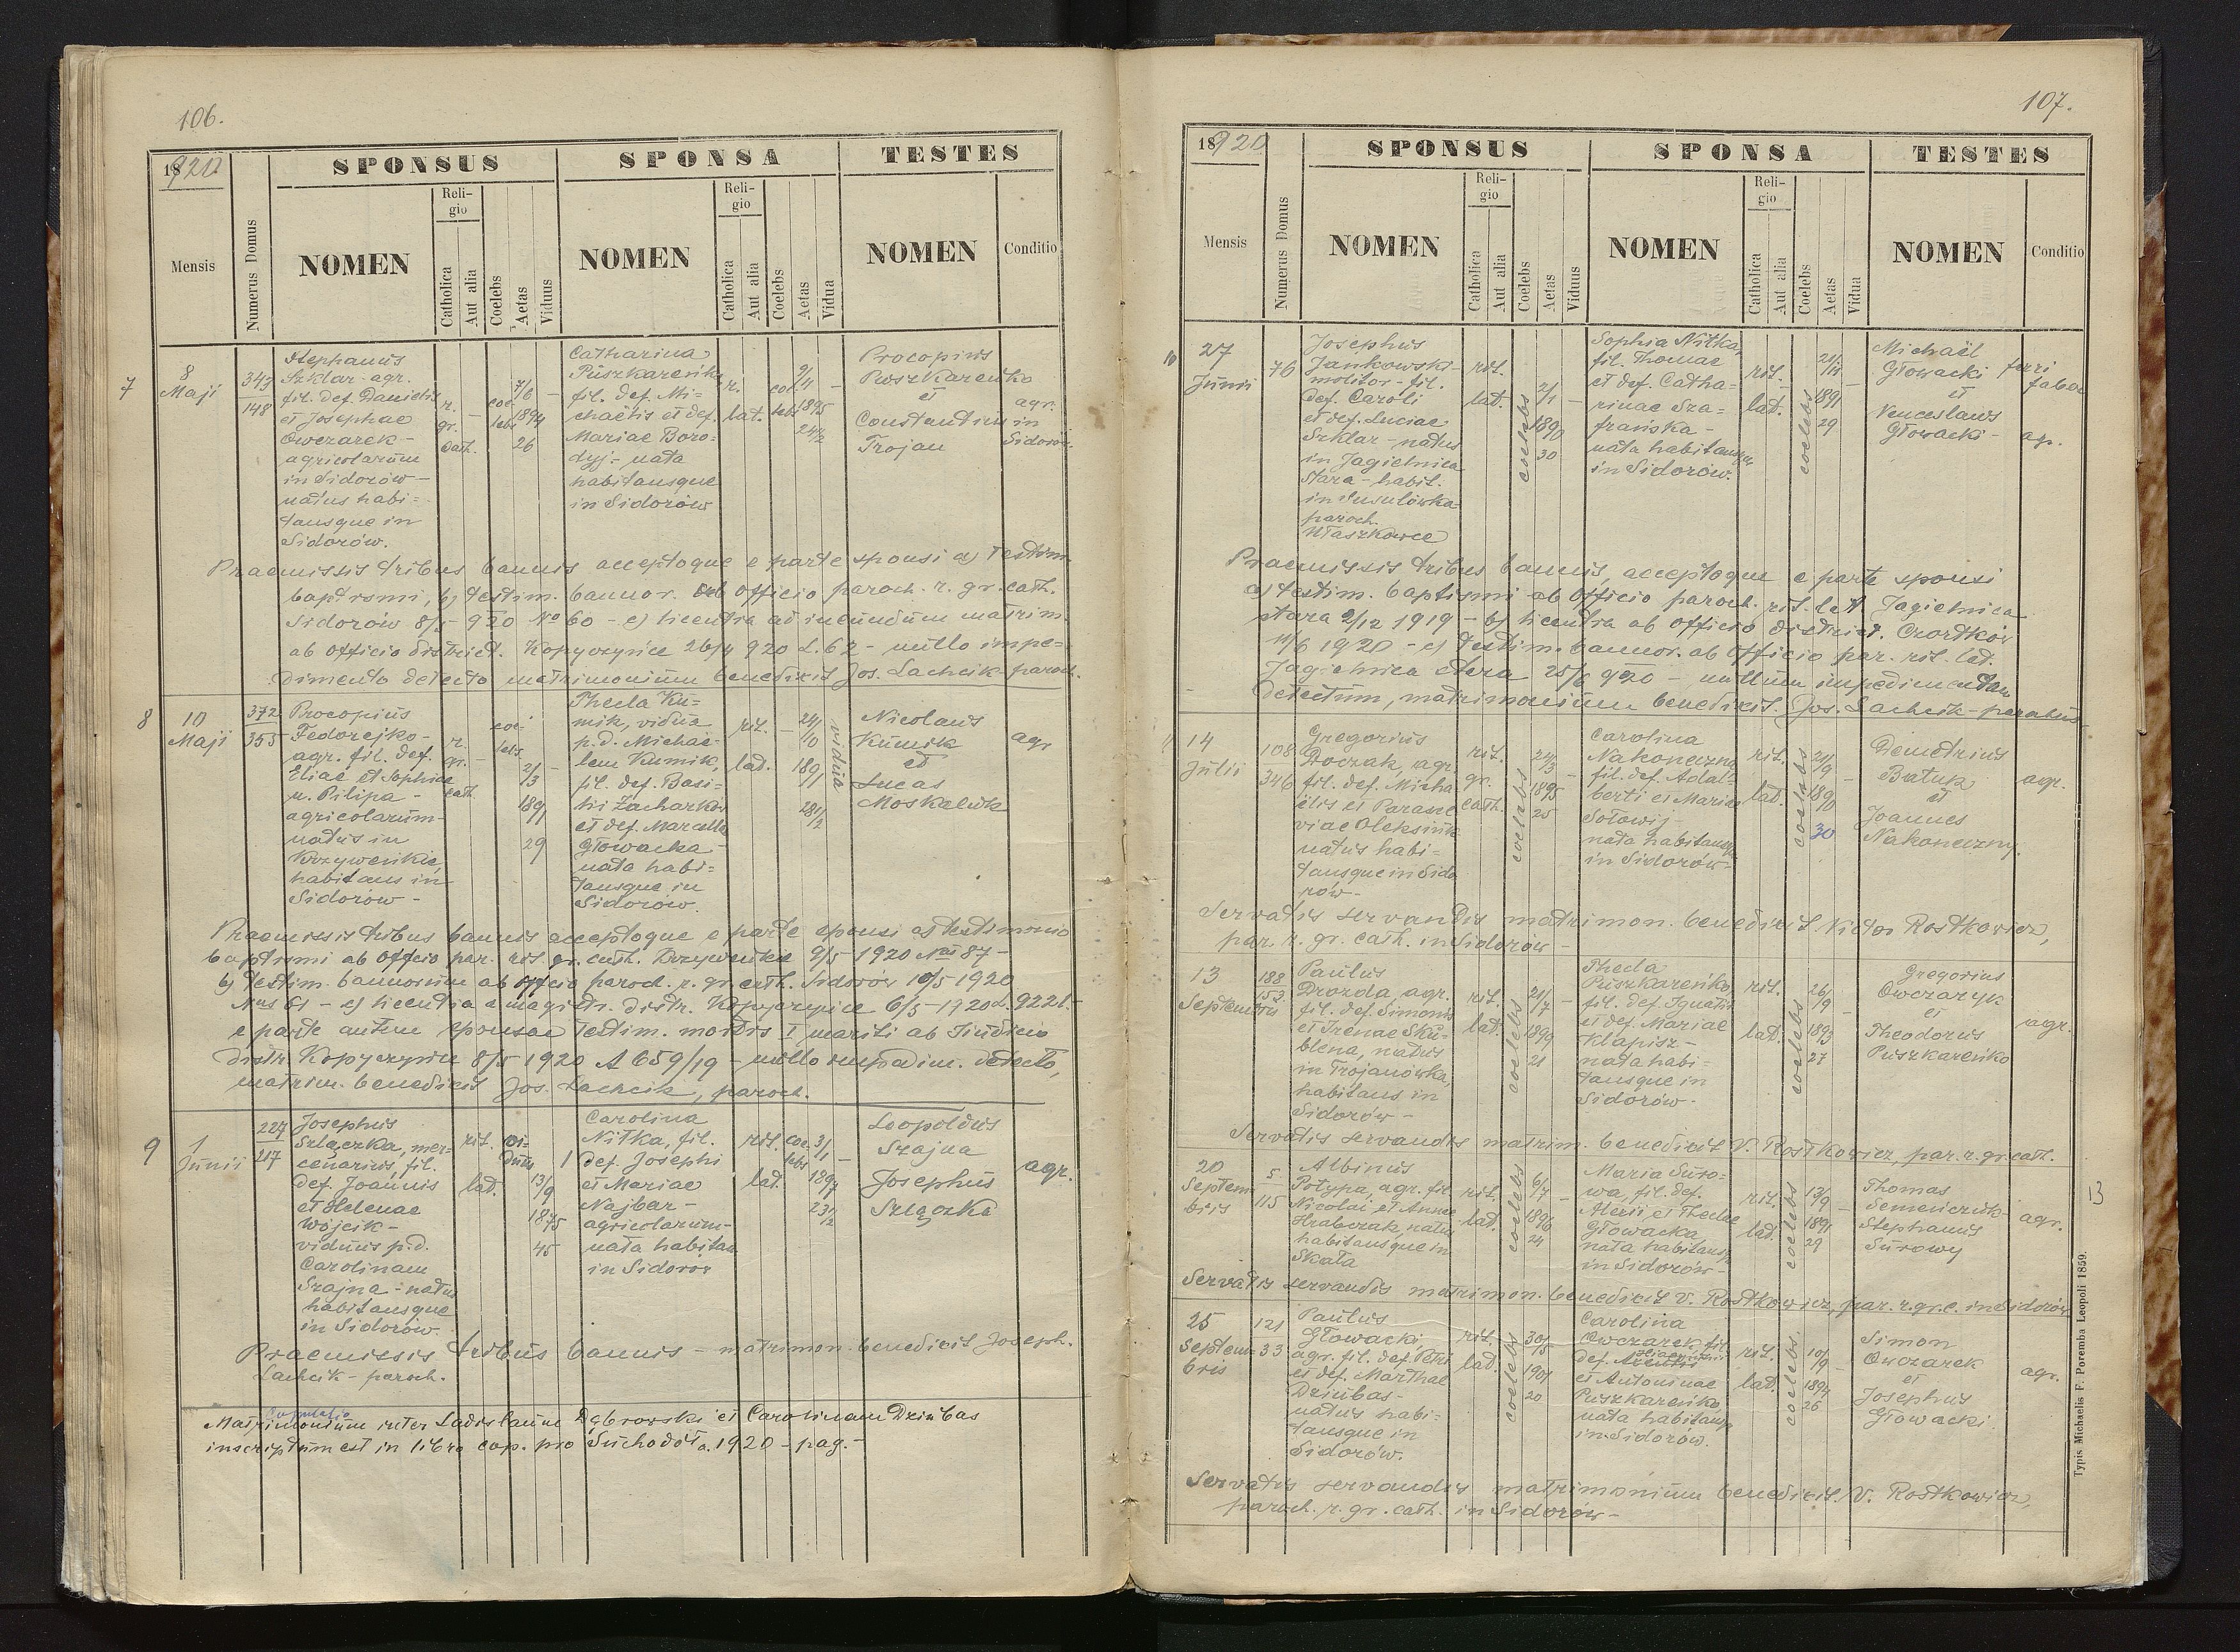 106.
18920
SPONSUS
SPONSA
TESTES
Mensis
Numerus Domus
NOMEN
Religio
Catholica
Aut alia
Coelebs
Aetas
Viduus
NOMEN
Religio
Catholica
Aut alia
Coelebs
Aetas
Vidua
NOMEN
Conditio
7
8
Maji
343
148
Stephanus
Szklar - agr.
fil. def. Danielis
et Josephae
Owczarek -
agricolarum
in Sidorów -
natus habi=
tansque in
Sidorów.
r.
gr.
cath.
coe-
lebs
7/6
1894
26
Catharina
Puszkareńko
fil. def. Mi=
chaelis et def.
Mariae Boro=
dyj - nata
habitansque
in Sidorów
r.
lat.
coe
lebs
2/4
1895
24 1/2
Procopius
Puszkareńko
et
Constantinus
Trojan
agr.
in
Sidorów.
Praemissis tribus bannis acceptoque e parte sponsi a) Testim.
baptismi, b) testim. bannor. ab officio paroch. r. gr. cath.
Sidorów 8/5 920 No 60 - c) licentia ad ineundum matrim.
ab officio district. Kopyczyńce 26/4 920 L. 62 - nullo impe=
dimento detecto matrimonium benedixit Jos. Lachcik paroch.
8
10
Maji
372
355
Procopius
Fedorejko -
agr. fil. def.
Eliae et Sophiae
n. Pilipa -
agricolarum -
natus in
Krzyweńkie
habitans in
Sidorów -
r.
gr.
cath
coe-
lebs
2/3
1891
29
Thecla Ku=
mik, vidua
p. d. Michae=
lem Kumik,
fil. def. Basi=
lii Zacharków
et def. Marcella
Głowacka -
nata habi=
tansque in
Sidorów.
rit.
lat.
24/10
1891
28 1/2
vidua
Nicolaus
Kumik
et
Lucas
Moskaluk
agr
Praemissis tribus bannis acceptoque e parte sponsi a) testimonio
baptismi ab officio par. rit. gr. cath. Krzyweńkie 9/5 1920 Nus 87 -
b) testim. bannorum ab officio paroch. r. gr. cath. Sidorów 10/5 1920
Nus 61 - c) licentia a magistr. distr. Kopyczyńce 6/5 - 1920 L. 9221 -
e parte autem sponsae testim. mortis I mariti ab Judicio
distr. Kopyczyńce 8/5 1920 A 659/19 - nullo impedim. detecto,
matrim. benedixit Jos. Lachcik, paroch.
9
1
Junii
227
217
Josephus
Szlączka, mer=
cenarius, fil.
def. Joannis
et Helenae
Wójcik -
viduus p. d.
Carolinam
Szajna - natus
habitansque
in Sidorów.
rit.
lat.
vi-
duus
13/9
1875
45
1
Carolina
Nitka, fil.
def. Josephi
et Mariae
Najbar -
agricolarum -
nata habitan
in Sidorów
rit.
lat.
coe
lebs
3/1
1897
23 1/2
Leopoldus
Szajna
Josephus
Szlączka
agr.
Praemissis tribus bannis - matrimon. benedixit Joseph.
Lachcik - paroch.
Copulatio
Matrimonium inter Ladislaum Dąbrowski et Carolinam Dziubas
inscriptum est in libro cop. pro Suchodół a. 1920 - pag. -
107.
18920
SPONSUS
SPONSA
TESTES
Mensis
Numerus Domus
NOMEN
Religio
Catholica
Aut alia
Coelebs
Aetas
Viduus
NOMEN
Religio
Catholica
Aut alia
Coelebs
Aetas
Vidua
NOMEN
Conditio
10
27
Junii
76
Josephus
Jankowski -
molitor - fil.
def. Caroli
et def. Luciae
Szklar - natus
in Jagielnica
Stara - habit.
in Susulówka
paroch.
Ułaszkowce
rit.
lat.
coelebs
2/1
1890
30
Sophia Nitka
fil. Thomae
et def. Catha=
rinae Sza=
frańska -
nata habitansque
in Sidorów.
rit.
lat.
coelebs
1891
29
Michaël
Głowacki
et
Venceslaus
Głowacki -
feri
faber
agr.
Praemissis tribus bannis, acceptoque e parte sponsi
a) testim. baptismi ab officio paroch. rit. lat. Jagielnica
stara 2/12 1919 - b) licentia ab officio district. Czortków
11/6 1920 - c) testim. bannor. ab officio par. rit. lat.
Jagielnica stara 25/6 920 - nullum impedimentum
detectum, matrimonium benedixit. Jos. Lachcik - parochus
11
14
Julii
108
346
Gregorius
Doczak, agr.
fil. def. Micha
ëlis et Parasce
viae Oleksiuk
natus habi=
tansque in Sido
rów -
rit.
gr.
cath.
coelebs
24/3
1895
25
Carolina
Nakoneczna
fil. def. Adal=
berti et Mariae
Sołowij -
nata habitansque
in Sidorów -
rit.
lat.
coelebs
21/9
1890
30
Demetrius
Batuk
et
Joannes
Nakoneczny.
agr.
Servatis servandis matrimon. benedixit Victor Rostkowicz,
par. r. gr. cath. in Sidorów -
13
Septembris
188
152
Paulus
Drozda, agr.
fil. def. Simonis
et Irenae Sku=
blena, natus
in Trojanówka,
habitans in
Sidorów -
rit.
lat.
coelebs
21/7
1899
21
Thecla
Puszkareńko
fil. def. Ignatii
et def. Mariae
Klapisz -
nata habi=
tansque in
Sidorów.
rit.
lat.
coelebs
26/9
1893
27
Gregorius
Owczaryk
et
Theodorus
Puszkareńko
agr.
Servatis servandis matrim. benedixit V. Rostkowicz, par. r. gr. cath.
20
Septem
bris
5
115
Albinus
Potypa, agr. fil.
Nicolai et Annae
Hrabczak, natus
habitansque in
Skała
rit.
lat.
coelebs
6/7
1896
24
Maria Suro=
wa, fil. def.
Alexii et Theclae
Głowacka,
nata habitansq
in Sidorów -
rit.
lat.
coelebs
13/9
1891
29
Thomas
Semeńczuk
Stephanus
Surowy
agr.
13
Servatis servandis matrimon. benedixit V. Rostkowicz, par. r. gr. c. in Sidorów
25
Septem-
bris
121
33
Paulus
Głowacki,
agr. fil. def. Petri
et def. Marthae
Dziubas -
natus habi=
tansque in
Sidorów.
rit.
lat.
coelebs
30/5
1901
20
Carolina
Owczarek, fil.
def.
et Antoninae
Puszkareńko
nata habitansq
in Sidorów.
rit.
lat.
coelebs
10/9
1894
26
Simon
Owczarek
et
Josephus
Głowacki
agr.
Servatis servandis matrimonium benedixit V. Rostkowicz,
paroch. r. gr. cath. in Sidorów -
Typis Michaelis F. Poremba Leopoli 1859.